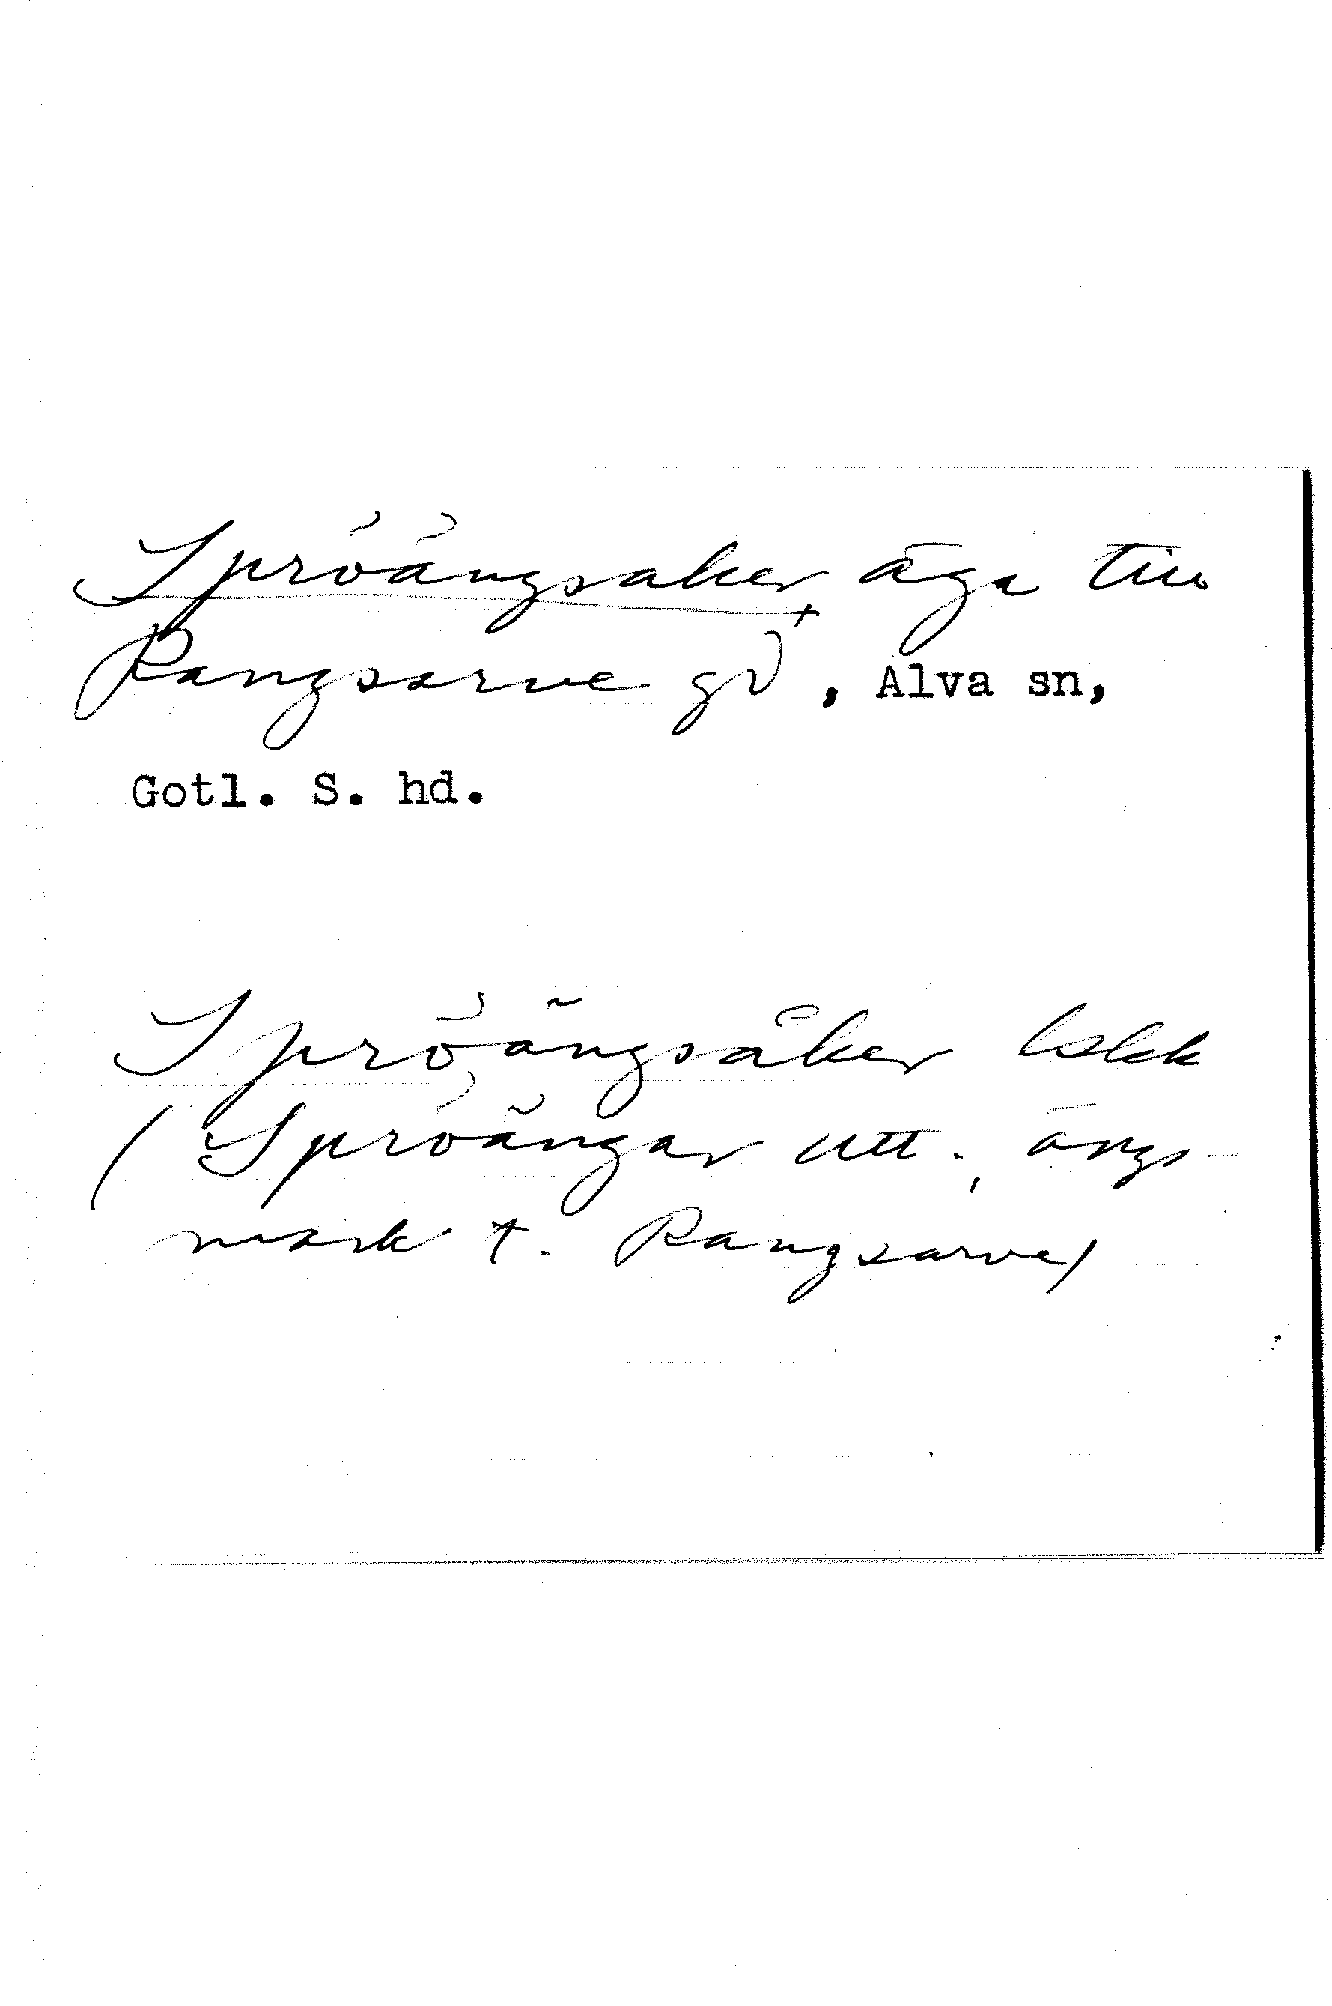 Spröängsaker äga till
Rangsarve gd, Alva sn,
Gotl. S. hd.
Spröängsåker lskk
(Spröängar utt., ängs-
mark t. Rangsarve)